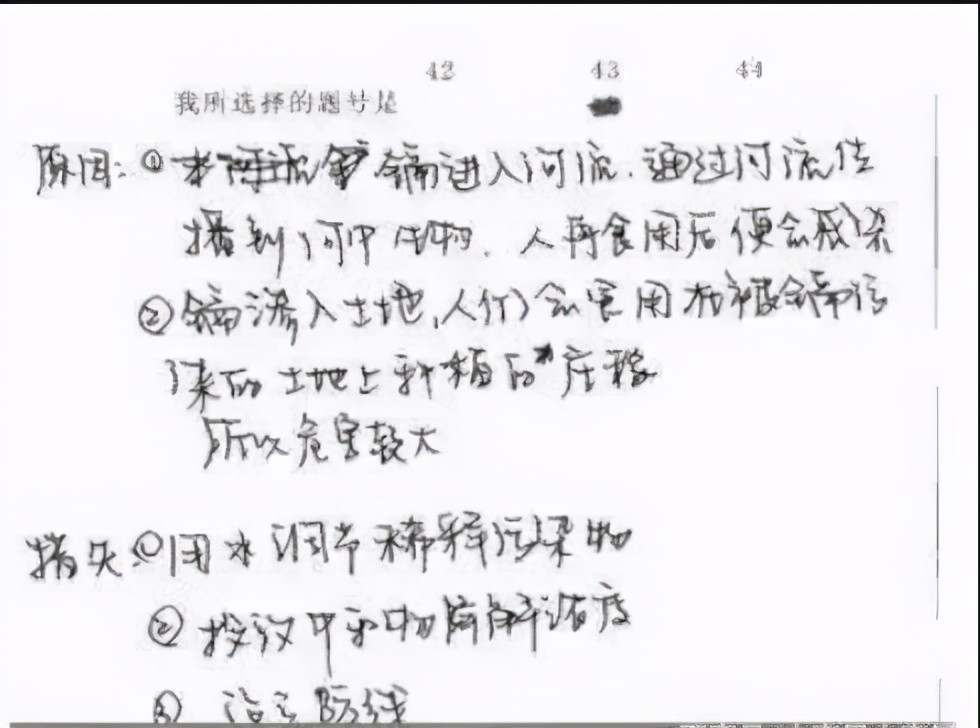 42 43 44
我所选择的题号是
原因：① 镉进入河流．通过河流传
播到河中生物．人再食用后便会感染
②镉渗入土地，人们会食用在被镉污
染的土地上种植的庄稼
所以危害较大
措失：①用水调节稀释污染物
②投放中和物降解浓度
③ 设立防线